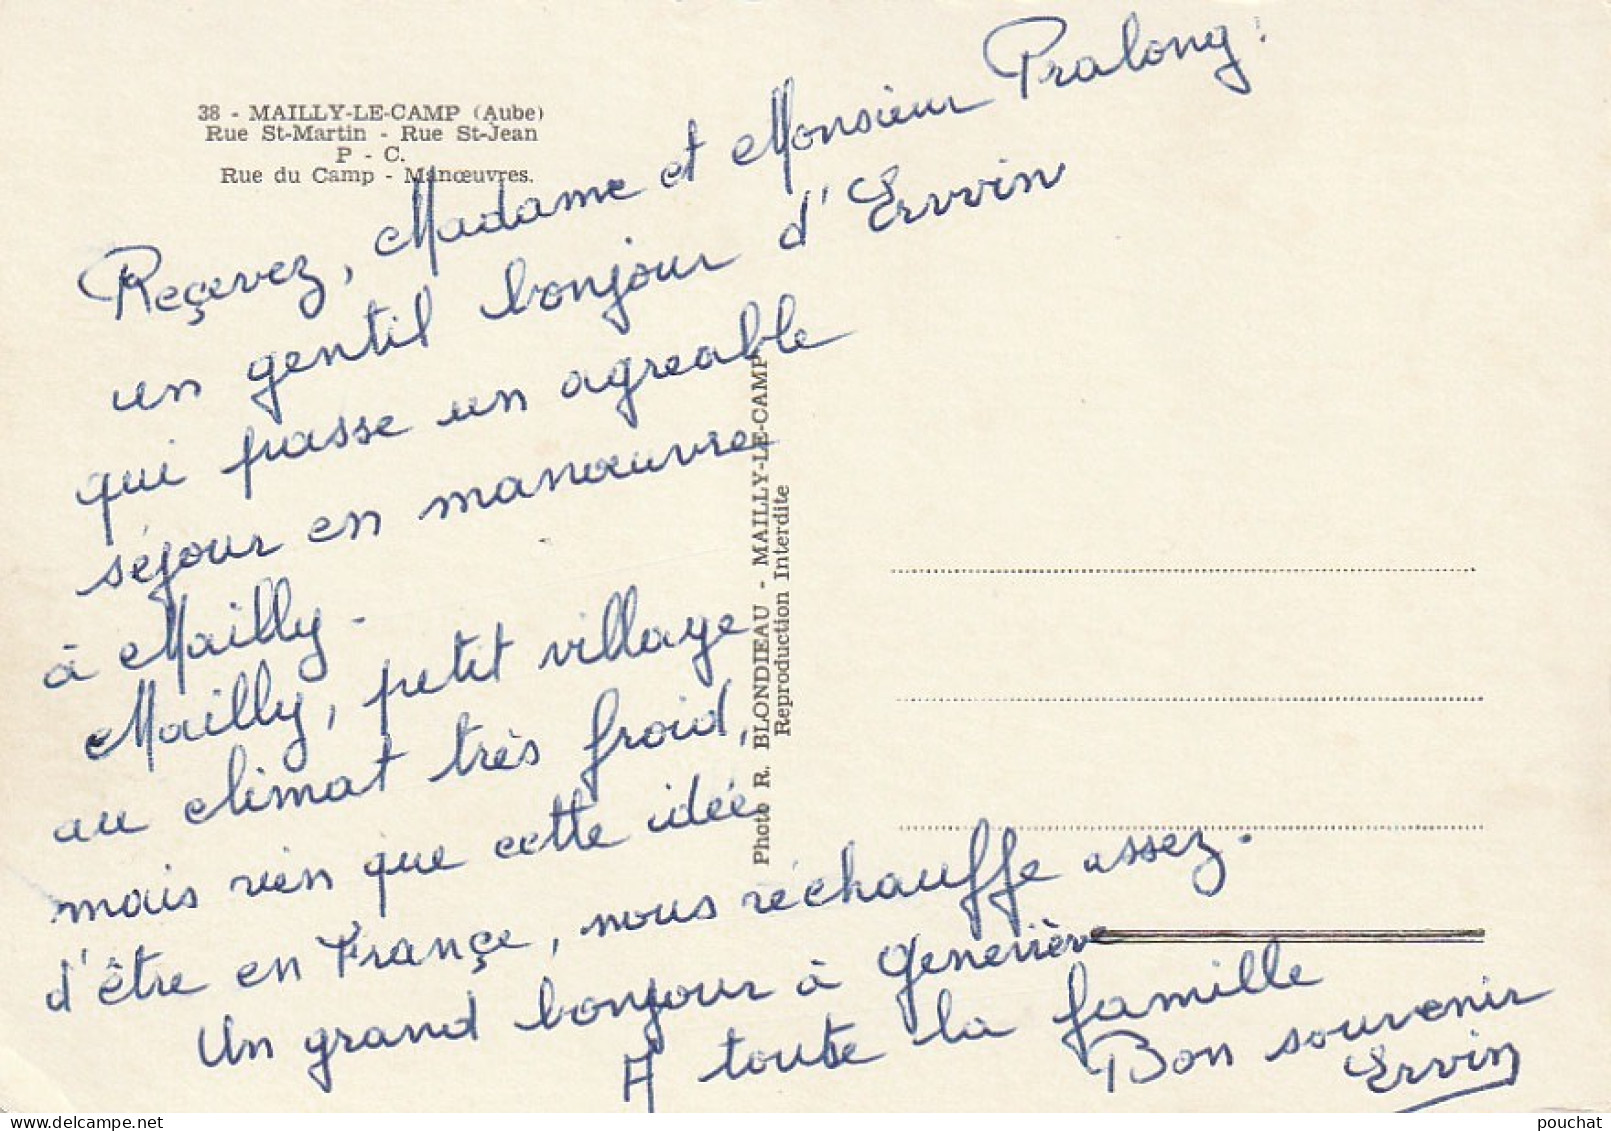 38 - MAILLY-LE-CAMP (Aube)
Rue St-Martin - Rue St-Jean
P - C.
Rue du Camp - Manœuvres.
Reçevez, Madame et Monsieur Pralong!
un gentil bonjour d'Ervvin
qui passe un agreable
séjour en manœuvre
à Mailly.
Mailly, petit village
au climat très froid,
mais rien que cette idée
d'être en Françe, nous réchauffe assez.
Un grand bonjour à Geneviève
A toute la famille
Bon souvenir
Ervin
Photo R. BLONDIEAU - MAILLY-LE-CAMP
Reproduction Interdite
www.delcampe.net
pouchat